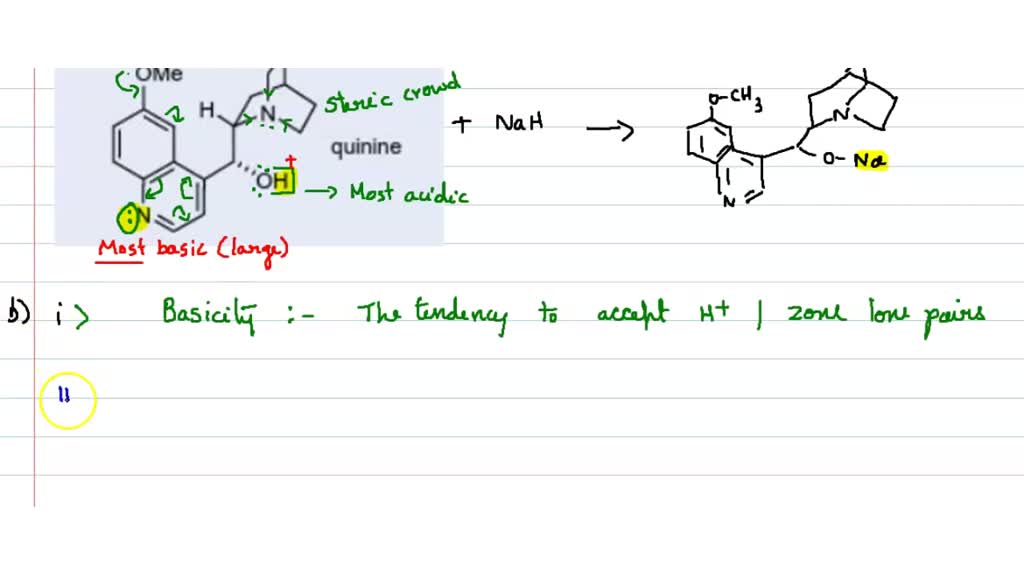 OMe
H
N
steric crowd
quinine
+
OH
→ Most acidic
N
Most basic (large)
+ NaH →
O-CH3
N
O- Na
N
b) i> Basicity :- The tendency to accept H+ | zone lone pairs
ii